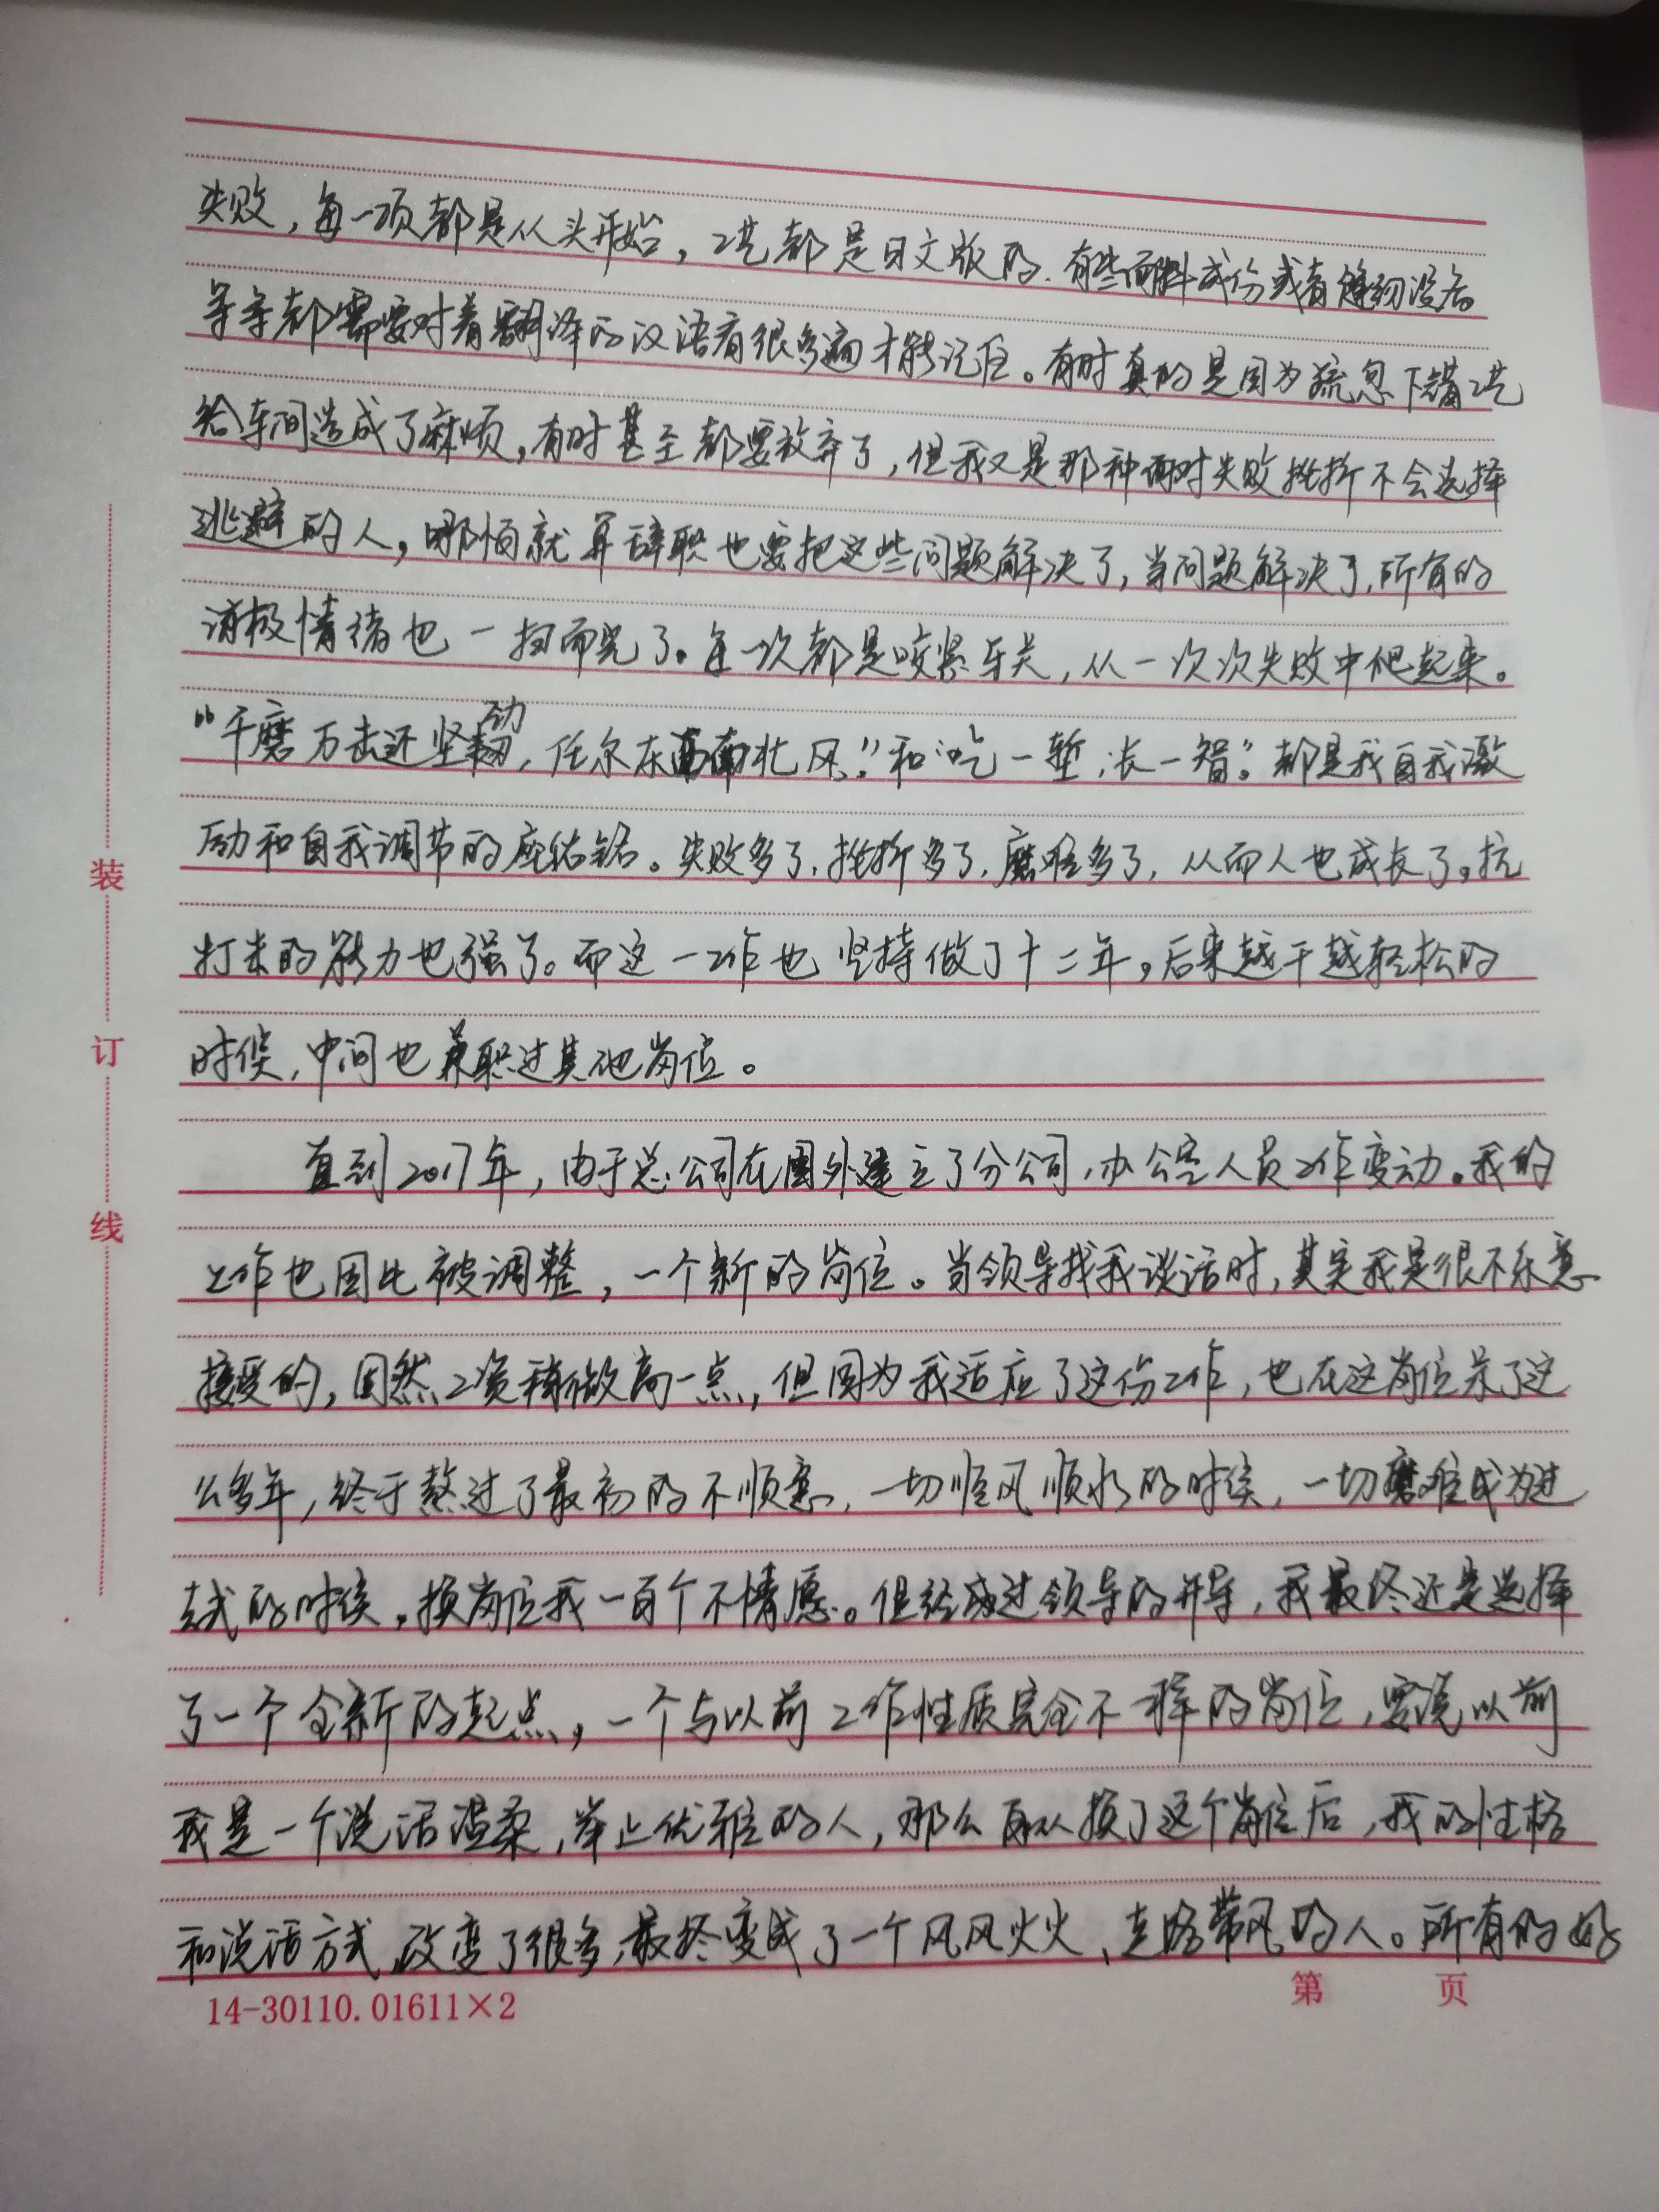 失败，每一项都是从头开始，工艺都是日文版的.有些面料成份或者缝纫设备
等等都需要对着翻译的汉语看很多遍才能记住。有时真的是因为疏忽下错工艺
给车间造成了麻烦，有时甚至都要放弃了，但我又是那种面对失败挫折不会选择
逃避的人，哪怕就算辞职也要把这些问题解决了，当问题解决了，所有的
消极情绪也一扫而完了。每一次都是咬紧牙关，从一次次失败中爬起来。
“千磨万击还坚劲，任尔东西南北风”。和“吃一堑，长一智”。都是我自我激
励和自我调节的座佑铭。失败多了，挫折多了，磨难多了，从而人也成长了，抗
打击的能力也强了。而这一工作也坚持做了十二年，后来越干越轻松的
时候，中间也兼职过其他岗位。
直到2017年，由于总公司在国外建立了分公司，办公室人员工作变动。我的
工作也因此被调整，一个新的岗位。当领导找我谈话时，其实我是很不乐意
接受的，固然工资稍微高一点，但因为我适应了这份工作，也在这岗位呆了这
么多年，终于熬过了最初的不顺意，一切顺风顺水的时候，一切磨难成为过
去式的时候，换岗位我一百个不情愿。但经过领导的开导，我最终还是选择
了一个全新的起点，一个与以前工作性质完全不一样的岗位，要说以前
我是一个说话温柔，举止优雅的人，那么自从换了这个岗位后，我的性格
和说话方式，改变了很多，最终变成了一个风风火火、走路带风的人。所有的好
装
订
线
14-30110.01611×2
第 页